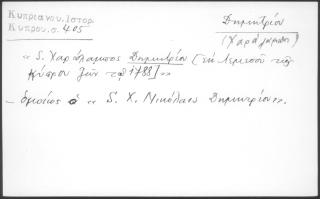 Κυπριανου. Ιστορ.
Κυπρου. σ. 405
Δημητρίου
(Χαράλαμπος)
« S. Χαράλαμπος Δημητρίου [ἐκ Λεμεσοῦ τῆς
Κύπρου ζῶν τῷ 1788] »
– ὁμοίως ὁ « S. Χ. Νικόλαος Δημητρίου ».